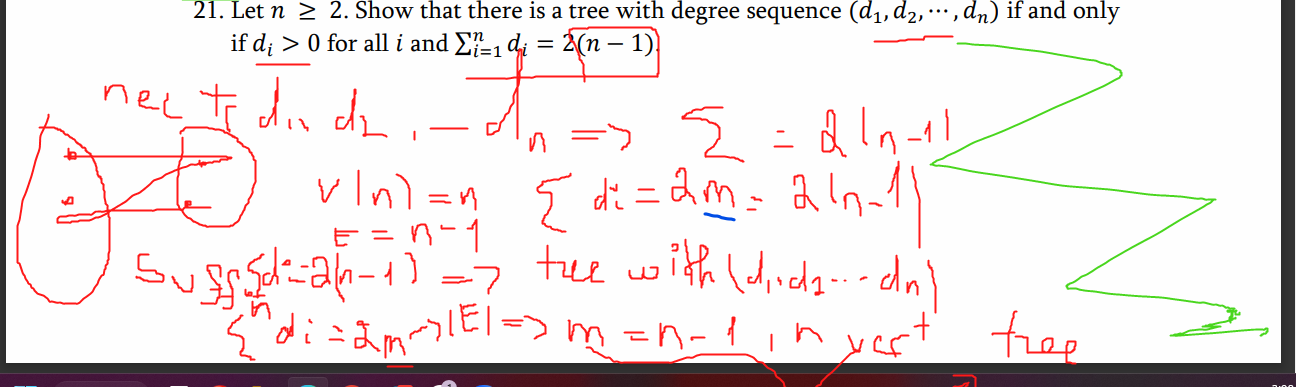 21. Let n ≥ 2. Show that there is a tree with degree sequence (d₁, d₂, ⋯, dₙ) if and only
if dᵢ > 0 for all i and Σⁿᵢ₌₁ dᵢ = 2(n − 1).
nec d₁, d₂, — dₙ => Σ = 2(n-1)
v(n) = n Σ di = 2m = 2(n-1)
E = n-1
Suff Σdi=2(n-1) => tree with (d₁,d₂...dn)
Σⁿ di = 2m → |E| => m = n-1, n vert tree